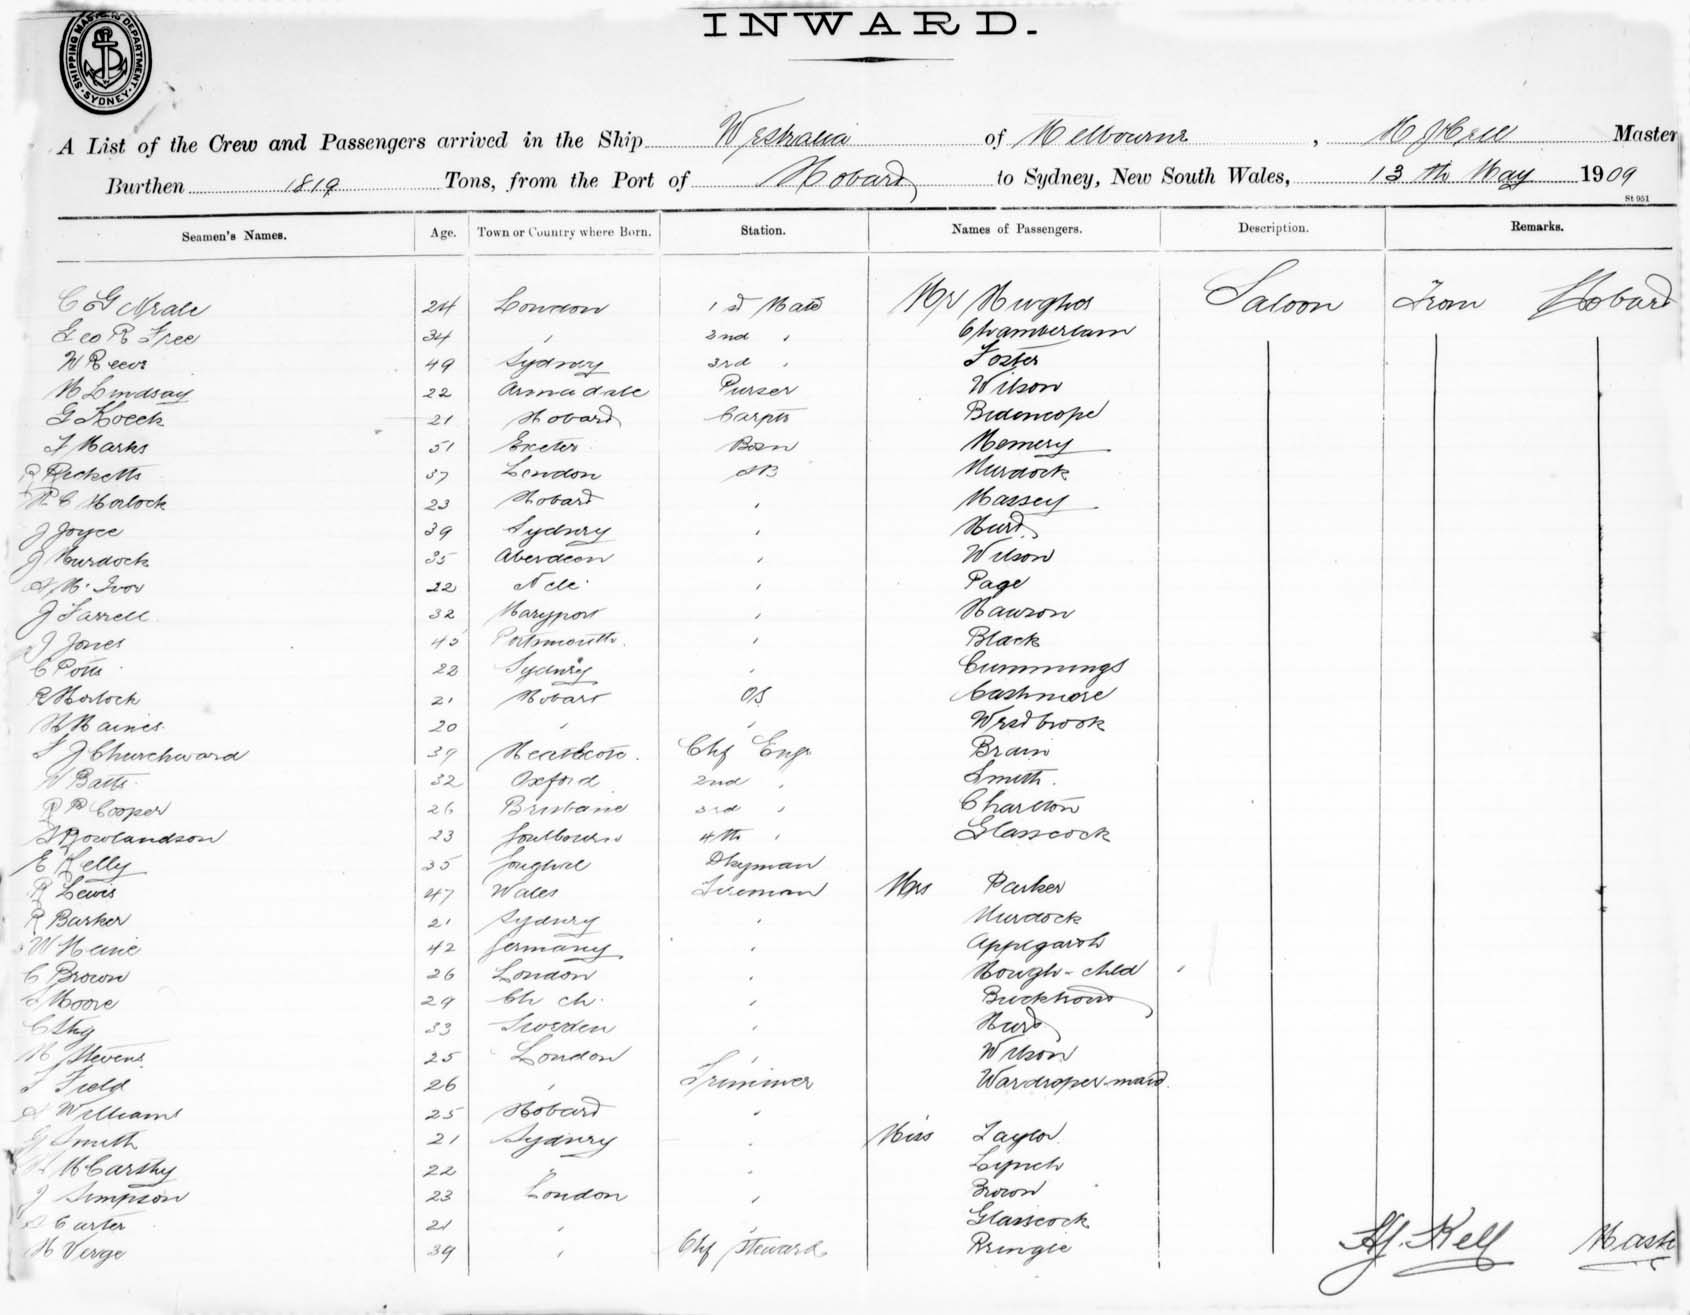 INWARD.
SHIPPING MASTERS DEPARTMENT SYDNEY
A List of the Crew and Passengers arrived in the Ship Westralia of Melbourne, H J Kell Master
Burthen 1819 Tons, from the Port of Hobart to Sydney, New South Wales, 13th May 1909
St 951
Seamen's Names. Age. Town or Country where Born. Station. Names of Passengers. Description. Remarks.
C G Neale 24 London 1st Mate Mr Hughes Saloon From Hobart
Geo R Free 34 " 2nd " Chamberlain
W Rees 49 Sydney 3rd " Foster
H Lindsay 22 Armadale Purser Wilson
G 21 Hobart Carptr
F Marks 51 Exeter Bosn Memery
R Ricketts 37 London AB Murdock
R C Horlock 23 Hobart " Massey
J Joyce 39 Sydney " Hurd
J Murdock 35 Aberdeen " Wilson
22 " Page
J Farrell 32 Maryport " Hawson
J Jones 45 Portsmouth " Black
C Potts 22 Sydney " Cummings
R Horlock 21 Hobart OS Cashmore
H Haines 20 " " Westbrook
F J Churchward 39 Heathcote Chf Engr Brain
W Batts 32 Oxford 2nd " Smith
R R Cooper 26 Brisbane 3rd " Charlton
A Rowlandson 23 Goulbourn 4th " Glasscock
E Kelly 35 Dkyman
R Lewis 47 Wales Fireman Mrs Parker
R Barker 21 Sydney " Murdock
W 42 Germany " Applegarth
C Brown 26 London " Hough - chld
Moore 29 Ch ch "
33 Sweden " Hurd
H Stevens 25 London " Wilson
F Field 26 " Trimmer Wardroper maid
A Williams 25 Hobart "
G Smith 21 Sydney " Miss Taylor
McCarthy 22 " " Lynch
J Simpson 23 London " Brown
Carter 21 " " Glasscock
H Verge 39 " Chf Steward Pringle
H J. Kell Mast